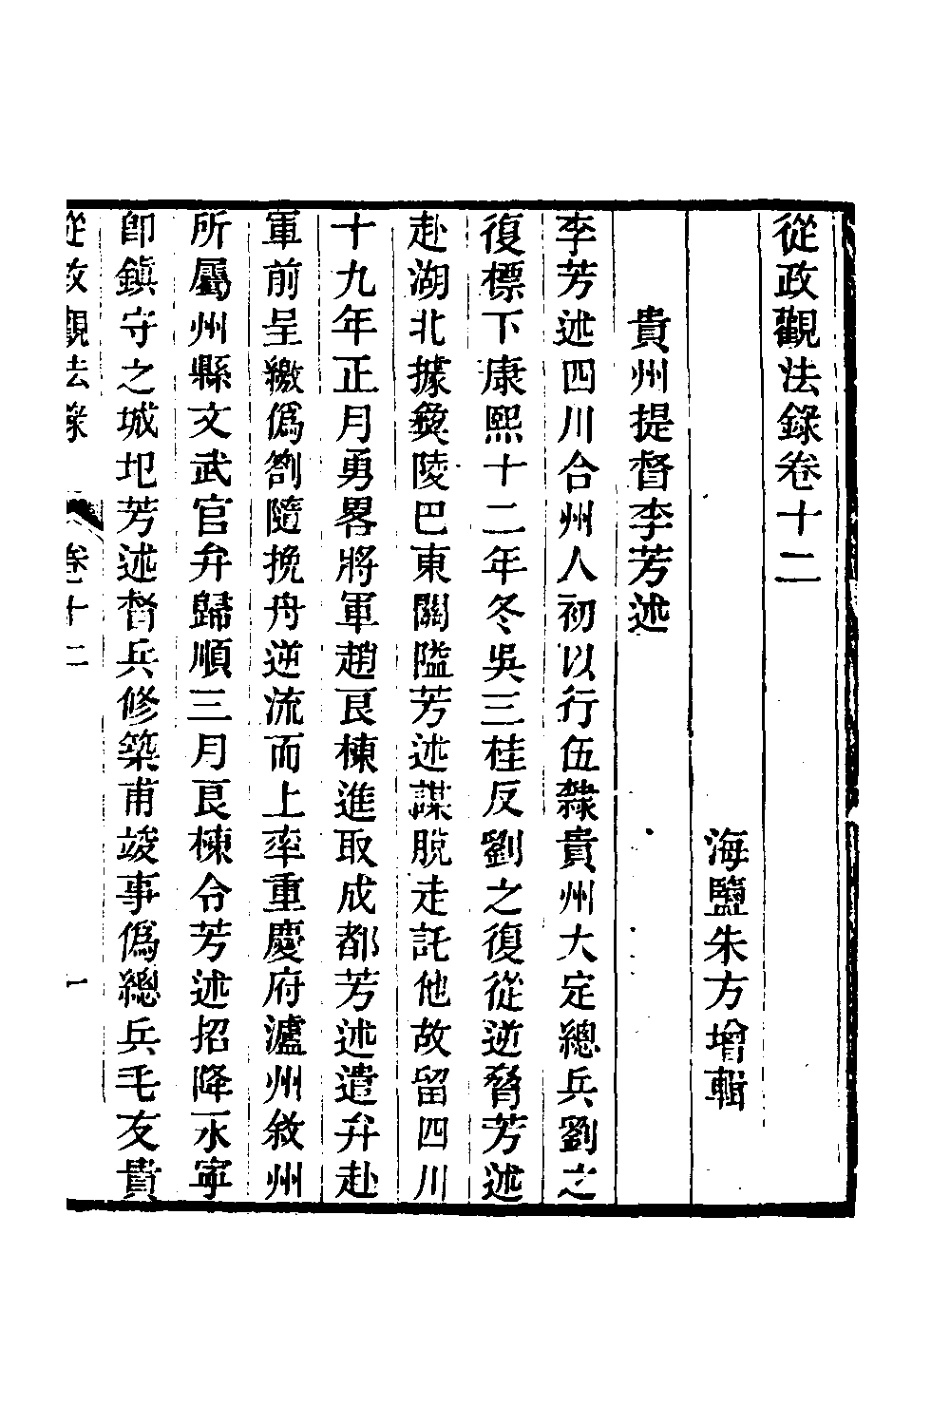 從政觀法錄卷十二
海鹽朱方增輯
貴州提督李芳述
李芳述四川合州人初以行伍隸貴州大定總兵劉之
復標下康熙十二年冬吳三桂反劉之復從逆脅芳述
赴湖北據彝陵巴東關隘芳述謀脫走託他故留四川
十九年正月勇畧將軍趙良棟進取成都芳述遣弁赴
軍前呈繳僞劄隨挽舟逆流而上率重慶府瀘州敘州
所屬州縣文武官弁歸順三月良棟令芳述招降永寧
卽鎭守之城圯芳述督兵修築甫竣事僞總兵毛友貴
從政觀法錄 卷十二 一